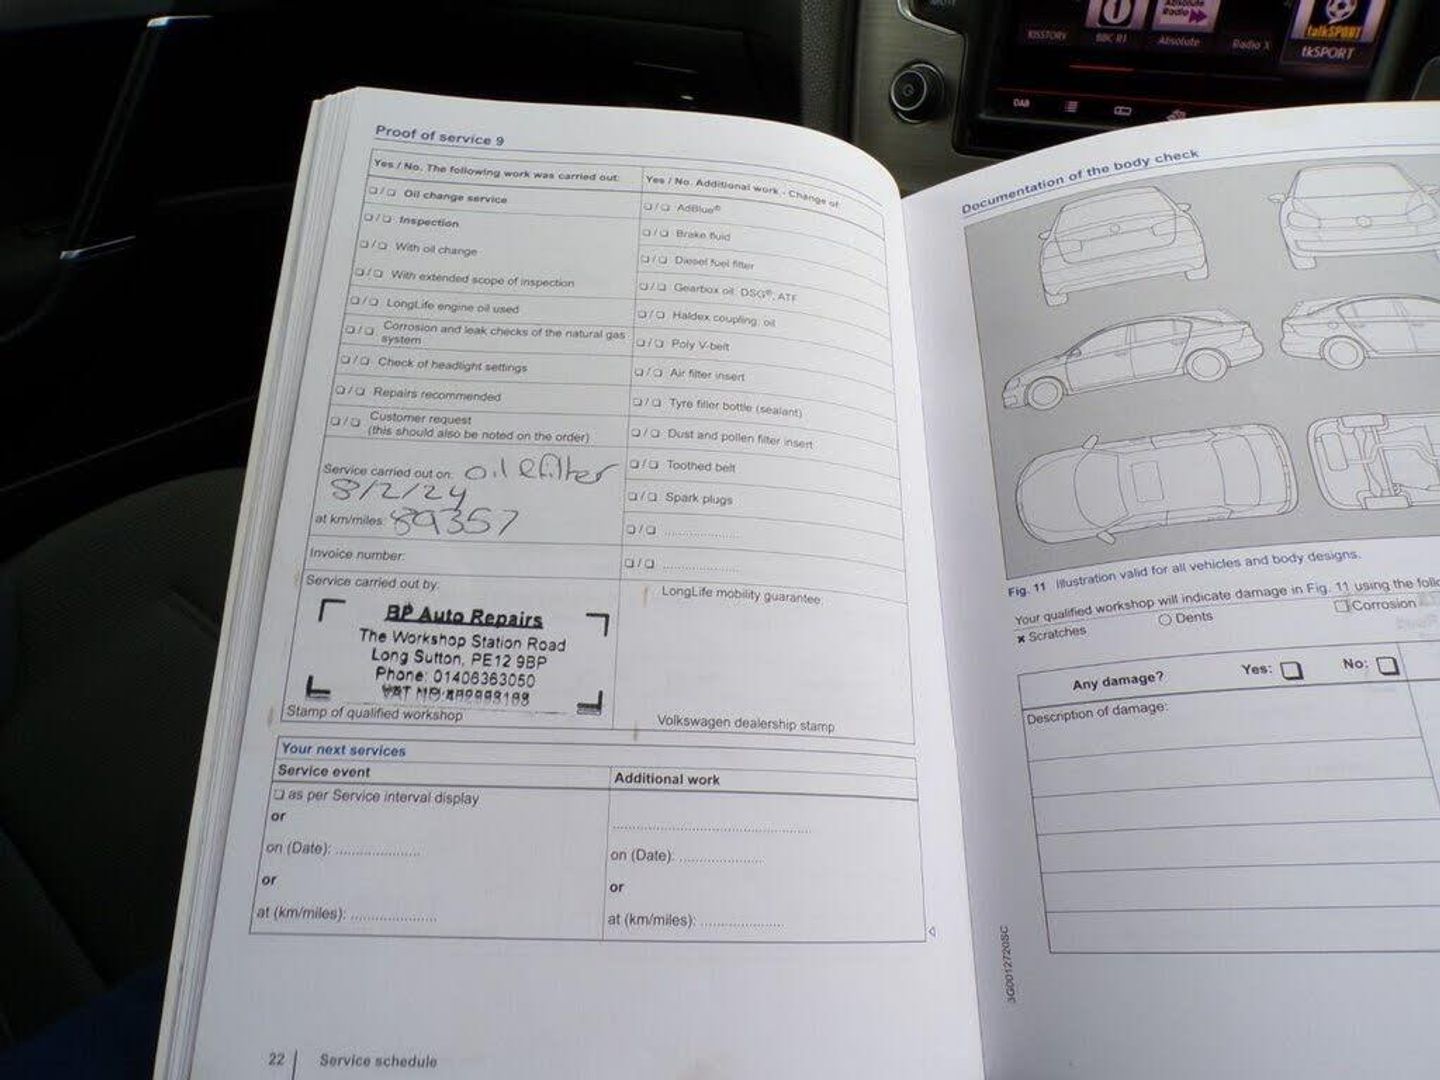 KISSTORY
BBC R1
Absolute Radio
Absolute
Radio X
talkSPORT
tkSPORT
DAB
Proof of service 9
Yes / No. The following work was carried out:
❑ / ❑ Oil change service
❑ / ❑ Inspection
❑ / ❑ With oil change
❑ / ❑ With extended scope of inspection
❑ / ❑ LongLife engine oil used
❑ / ❑ Corrosion and leak checks of the natural gas
system
❑ / ❑ Check of headlight settings
❑ / ❑ Repairs recommended
❑ / ❑ Customer request
(this should also be noted on the order)
Service carried out on: oil & filter
8/2/24
at km/miles: 89357
Invoice number:
Service carried out by:
BP Auto Repairs
The Workshop Station Road
Long Sutton, PE12 9BP
Phone: 01406363050
VAT NO
Stamp of qualified workshop
Yes / No. Additional work - Change of:
❑ / ❑ AdBlue®
❑ / ❑ Brake fluid
❑ / ❑ Diesel fuel filter
❑ / ❑ Gearbox oil: DSG®, ATF
❑ / ❑ Haldex coupling, oil
❑ / ❑ Poly V-belt
❑ / ❑ Air filter insert
❑ / ❑ Tyre filler bottle (sealant)
❑ / ❑ Dust and pollen filter insert
❑ / ❑ Toothed belt
❑ / ❑ Spark plugs
❑ / ❑ .....................
❑ / ❑ .....................
LongLife mobility guarantee:
Volkswagen dealership stamp
Your next services
Service event
❑ as per Service interval display
or
on (Date): .....................
or
at (km/miles): .....................
Additional work
..................................................
on (Date): .....................
or
at (km/miles): .....................
22 | Service schedule
Documentation of the body check
Fig. 11 Illustration valid for all vehicles and body designs.
Your qualified workshop will indicate damage in Fig. 11 using the
× Scratches
○ Dents
❑ Corrosion
Any damage?
Yes: ❑
No: ❑
Description of damage:
3G0012720SC